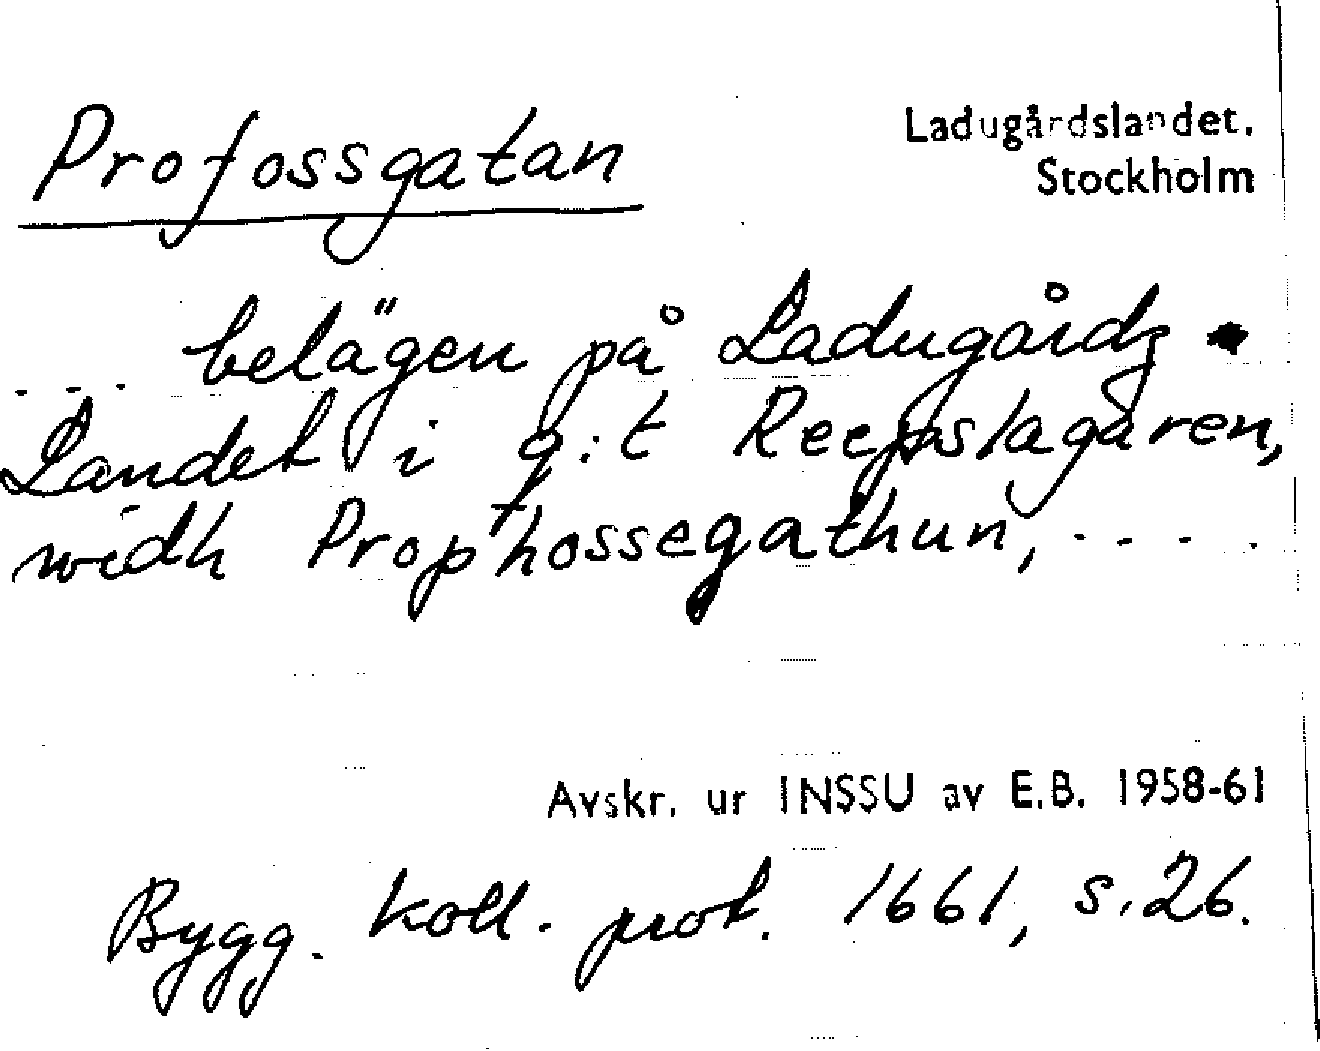 Profossgatan
Ladugårdslandet.
Stockholm
... belägen på Ladugårdz
Landet i q:t Reepslagaren,
widh Prophossegathun, ....
Avskr. ur INSSU av E.B. 1958-61
Bygg. koll. prot. 1661, s. 26.